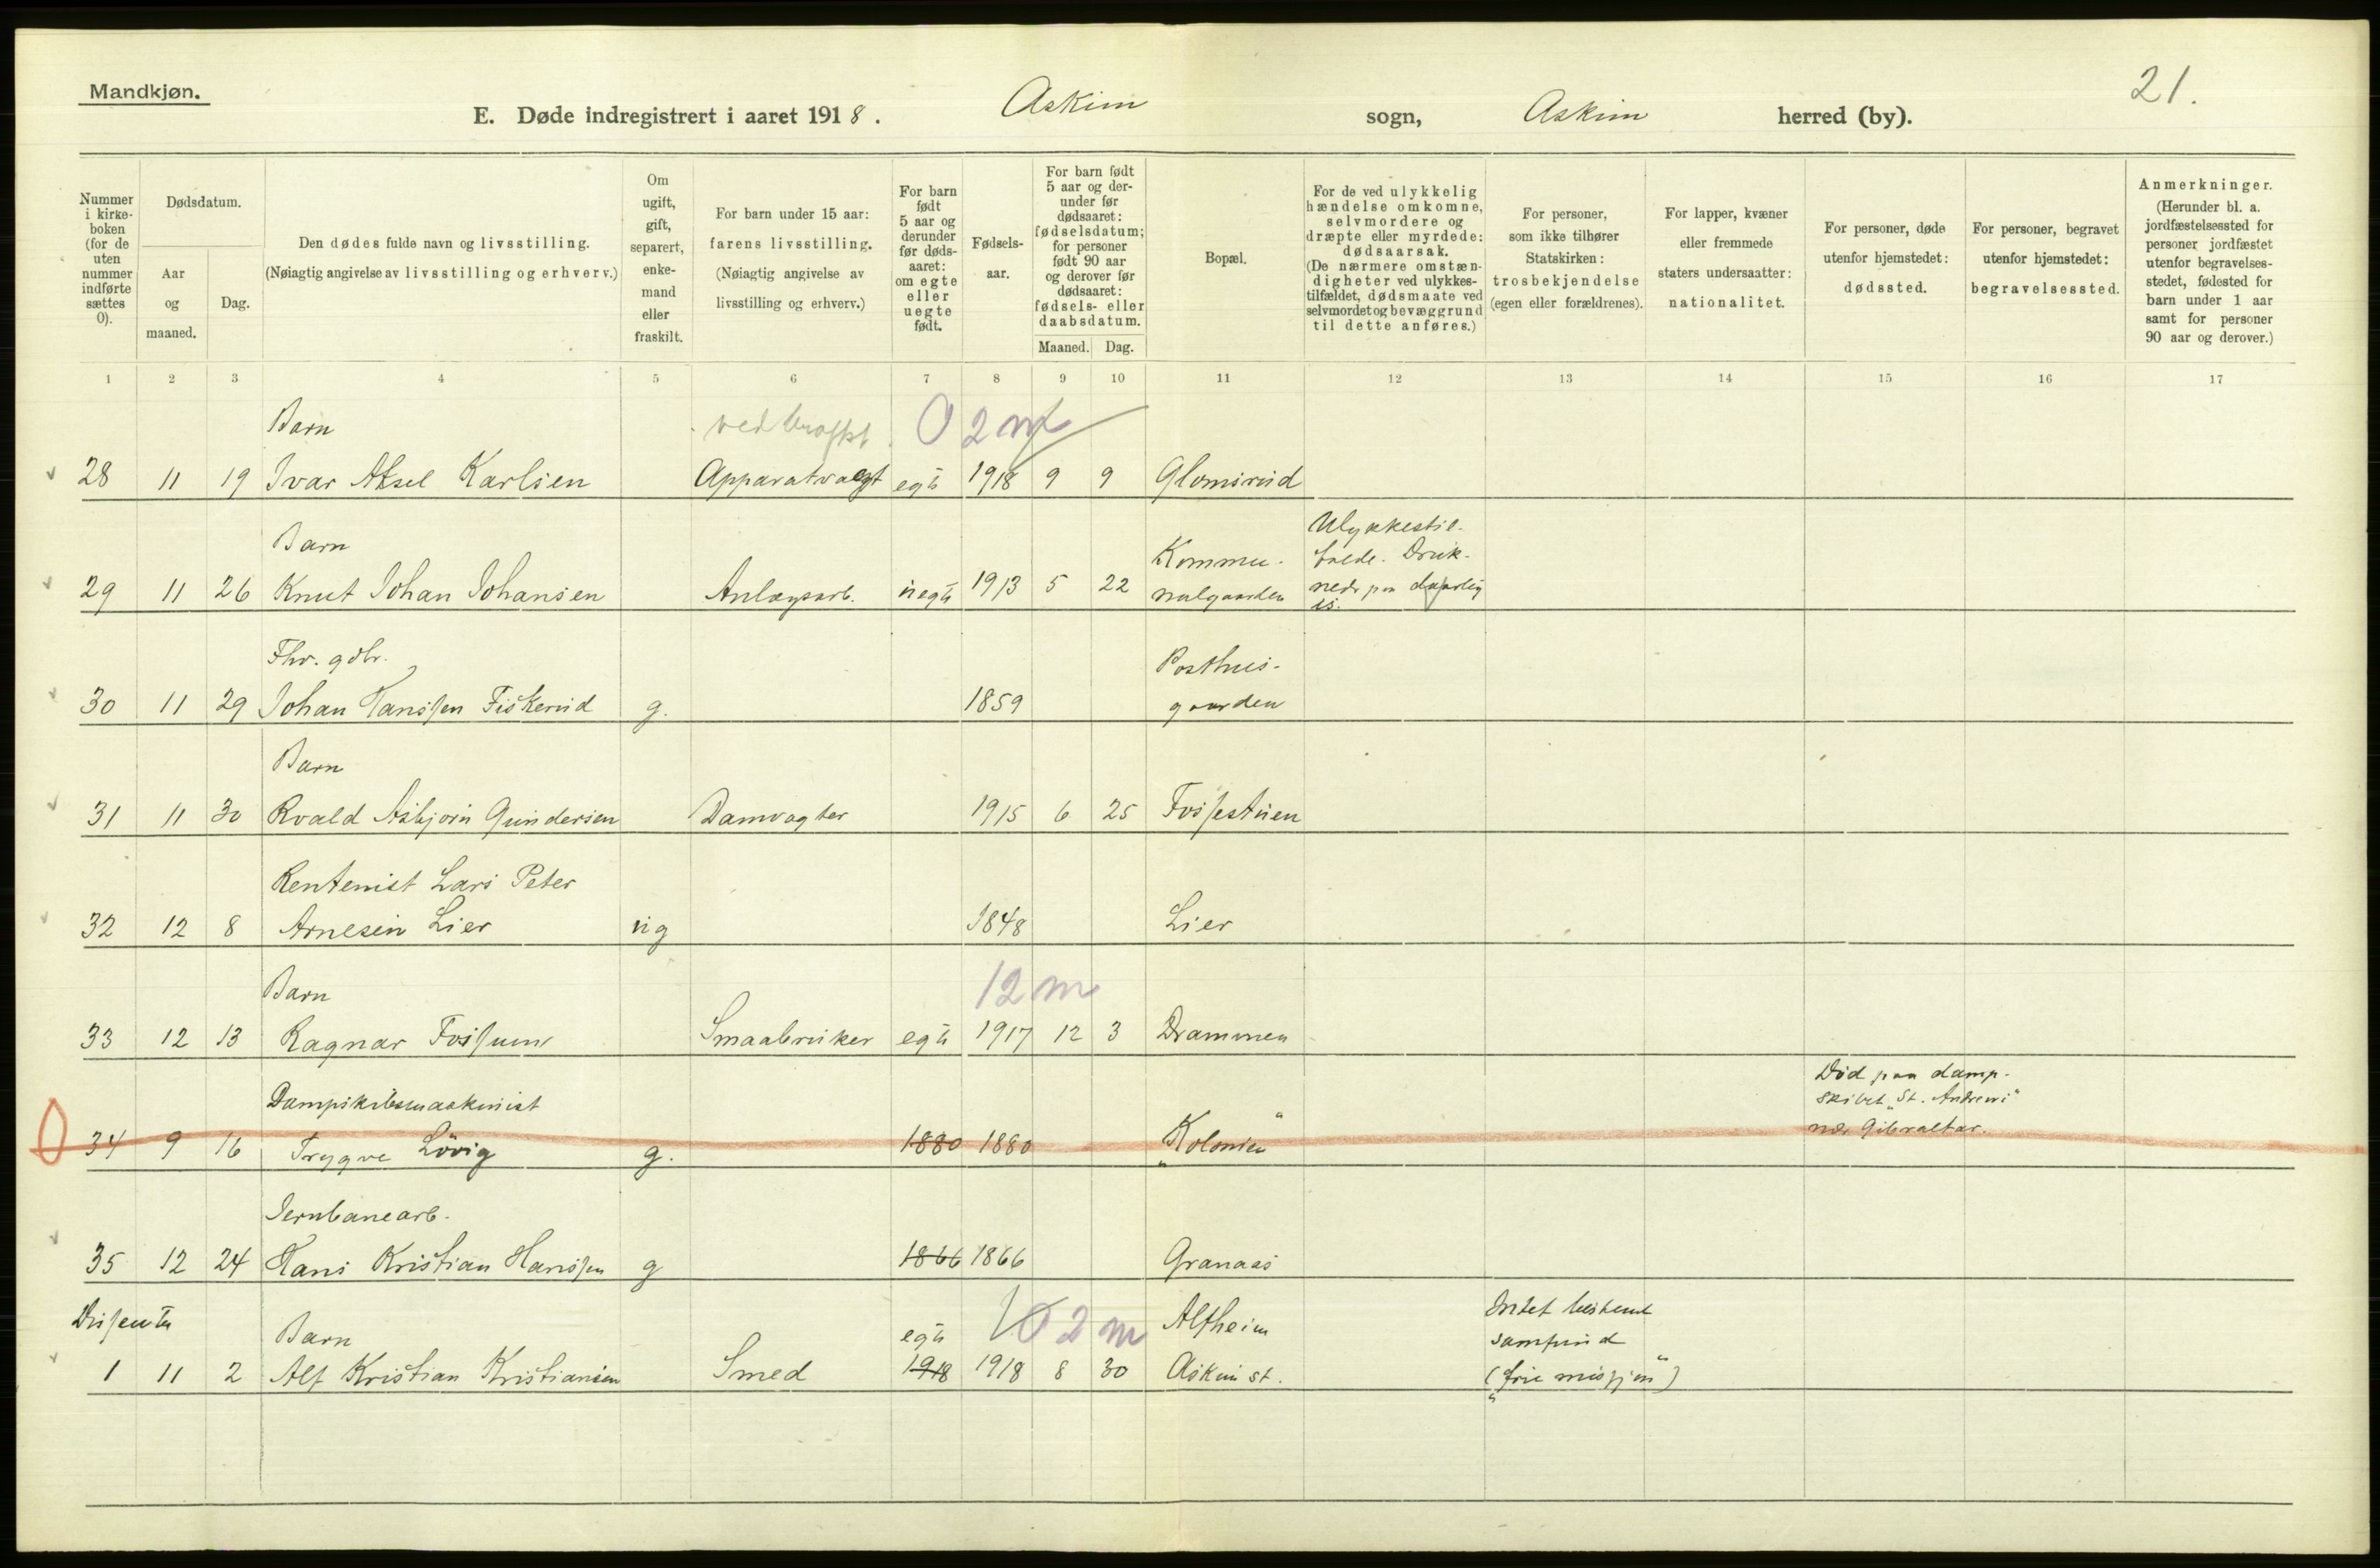 Mandkjøn.
21.
E. Døde indregistrert i aaret 1918. Askim sogn, Askim herred (by).
Nummer i kirke-boken (for de uten nummer indførte sættes 0).
Dødsdatum.
Aar og maaned.
Dag.
Den dødes fulde navn og livsstilling.
(Nøiagtig angivelse av livsstilling og erhverv.)
Om ugift, gift, separert, enke-mand eller fraskilt.
For barn under 15 aar: farens livsstilling.
(Nøiagtig angivelse av livsstilling og erhverv.)
For barn født 5 aar og derunder før døds-aaret: om egte eller uegte født.
Fødsels-aar.
For barn født 5 aar og der-under før dødsaaret: fødselsdatum; for personer født 90 aar og derover før dødsaaret: fødsels- eller daabsdatum.
Maaned. Dag.
Bopæl.
For de ved ulykkelig hændelse omkomne, selvmordere og dræpte eller myrdede: dødsaarsak.
(De nærmere omstæn-digheter ved ulykkes-tilfældet, dødsmaate ved selvmordet og bevæggrund til dette anføres.)
For personer, som ikke tilhører Statskirken: trosbekjendelse (egen eller forældrenes).
For lapper, kvæner eller fremmede staters undersaatter: nationalitet.
For personer, døde utenfor hjemstedet: dødssted.
For personer, begravet utenfor hjemstedet: begravelsessted.
Anmerkninger.
(Herunder bl. a. jordfæstelsessted for personer jordfæstet utenfor begravelses-stedet, fødested for barn under 1 aar samt for personer 90 aar og derover.)
1 2 3 4 5 6 7 8 9 10 11 12 13 14 15 16 17
Barn 0 2 m
28 11 19 Ivar Aksel Karlsen Apparatvagt egte 1918 9 9 Glomsrud
Barn Kommu- Ulykkestil-
fælde. Druk-
29 11 26 Knut Johan Johansen Anlægsarb. uegte 1913 5 22 nalgaarden nede paa daarlig
is.
Fhv. gdbr. Posthus-
30 11 29 Johan Hanssen Fiskerud g. 1859 gaarden
Barn
31 11 30 Roald Asbjørn Gundersen Damvogter 1915 6 25 Fossestuen
Rentenist Lars Peter
32 12 8 Arnesen Lier ug 1848 Lier
Barn 12 m
33 12 13 Ragnar Fossum Smaabruker egte 1917 12 3 Drammen
Dampskibsmaskinist Død paa damp-
skibet "St. Andrews"
34 9 16 Trygve Lövig g. 1880 1880 "Kolonien" nær Gibraltar.
Jernbanearb.
35 12 24 Hans Kristian Hanssen g 1866 1866 Granaas
Dissenter Intet bestemt
Barn egte 0 2 m Alfheim samfund
1 11 2 Alf Kristian Kristiansen Smed 1918 1918 8 30 Askim st. ("frie misjon")